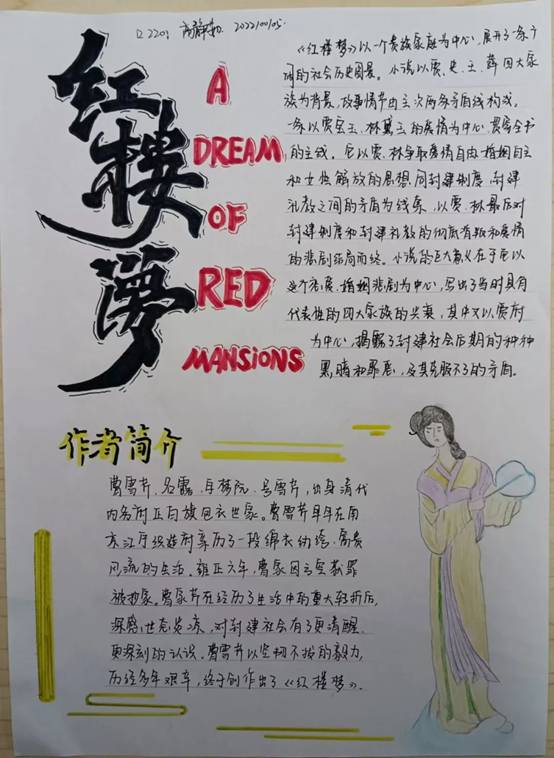 口2201 2022/10/05.
红楼梦
A
DREAM
OF
RED
MANSIONS
《红楼梦》以一个贵族家庭为中心,展开了一条广
阔的社会历史图景。小说以贾、史、王、薛四大家
族为背景,故事情节由主次两条矛盾线构成。
一条以贾宝玉、林黛玉的爱情为中心,贯穿全书
的主线。它以贾、林争取爱情自由、婚姻自主
和个性解放的思想同封建制度、封建
礼教之间的矛盾为线索,以贾、林最后对
封建制度和封建礼教的彻底背叛和爱情
的悲剧结局而终。小说的巨大意义在于它以
这个恋爱、婚姻悲剧为中心,写出了当时具有
代表性的四大家族的兴衰,其中又以贾府
为中心,揭露了封建社会后期的种种
黑暗和罪恶,及其克服不了的矛盾。
作者简介
曹雪芹,名霑,字梦阮,号雪芹,出身清代
内务府正白旗包衣世家。曹雪芹早年在南
京江宁织造府享历了一段锦衣纨绔、富贵
风流的生活。雍正六年,曹家因亏空获罪
被抄家。曹雪芹在经历了生活中的重大转折后,
深感世态炎凉,对封建社会有了更清醒、
更深刻的认识。曹雪芹以坚韧不拔的毅力,
历经多年艰辛,终于创作出了《红楼梦》.